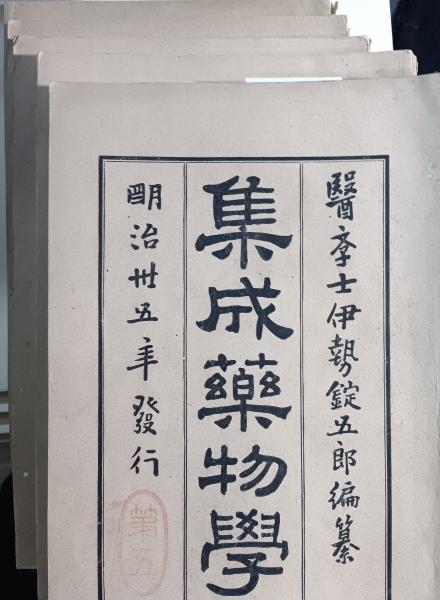 醫学士伊勢錠五郎編纂
集成藥物學
明治卅五年發行
第五